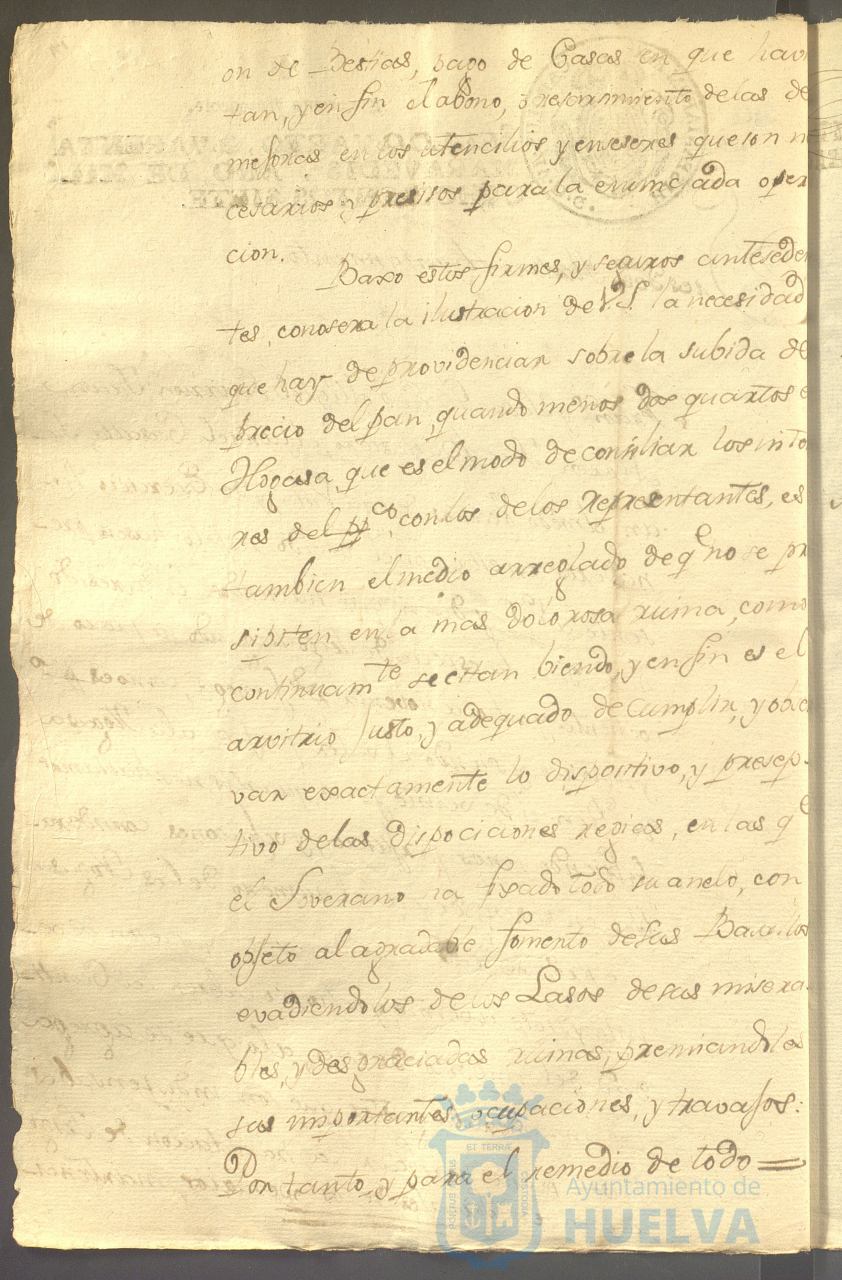 on de Bestias, pago de Casas en que havi
tan, y en fin el abono, o resarsimiento de las de
mejoras en los utencilios y enseres que son n
cesarios, y presisos para la enunsiada oper
cion.
Baxo estos firmes, y seguros anteseden
tes, conosera la ilustracion de V.S. la necesidad
que hay de providenciar sobre la subida de
precio del pan, quando menos dos quartos e
Hogasa, que es el modo de consiliar los inte
res del pp.co, con los de los representantes, es
tambien el medio arreglado de qe no se pr
sipiten en la mas dolorosa ruina, como
continuamte se estan biendo, y en fin es el
arvitrio justo, y adequado de cumplir, y obser
var exactamente lo dispocitivo, y presep-
tivo de las dispociciones regias, en las qe
el Soverano ha fixado todo su anelo, con
objeto al agradable fomento de sus Basallos
evadiendolos de los Lasos de sus misera-
bles, y desgraciadas ruinas, premiandoles
sus importantes ocupaciones, y travajos:
Por tanto, y para el remedio de todo =
Ayuntamiento de
HUELVA